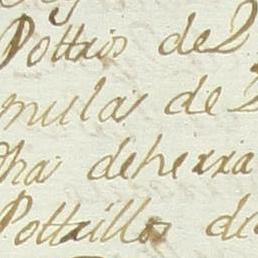 Pottros de 2
mulas de 2
Dhas deherra
Pottrillos de